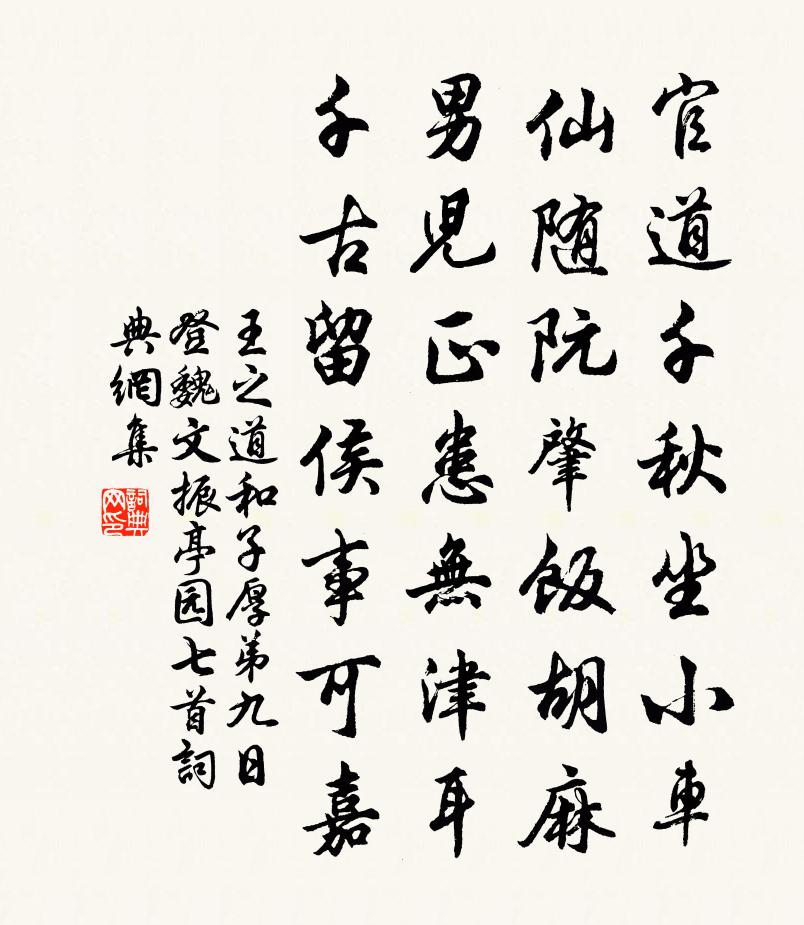 官道千秋坐小車
仙随阮肇飯胡麻
男兒正患無津耳
千古留侯事可嘉
王之道和子厚第九日
登魏文振亭园七首詞
典網集
詞典网印